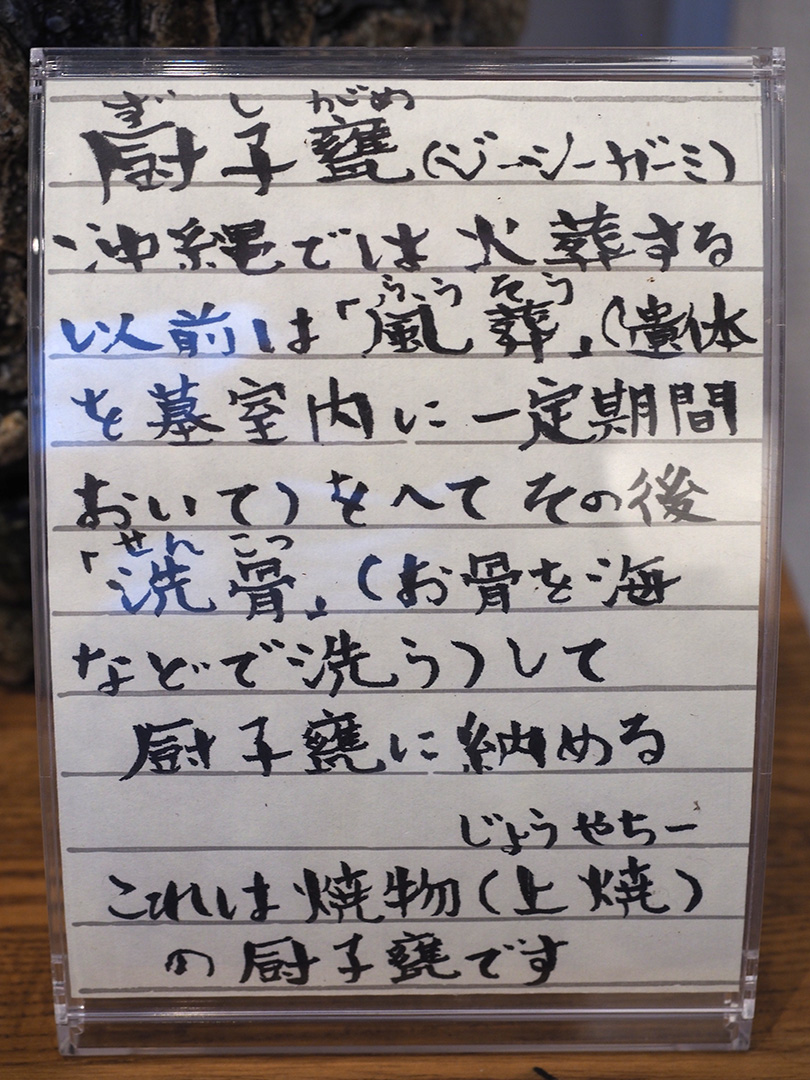 ずしがめ
厨子甕(ジーシーガーミ)
沖縄では火葬する
ふうそう
以前は「風葬」(遺体
を墓室内に一定期間
おいて)をへてその後
せんこつ
「洗骨」(お骨を海
などで洗う)して
厨子甕に納める
じょうやちー
これは焼物(上焼)
の厨子甕です